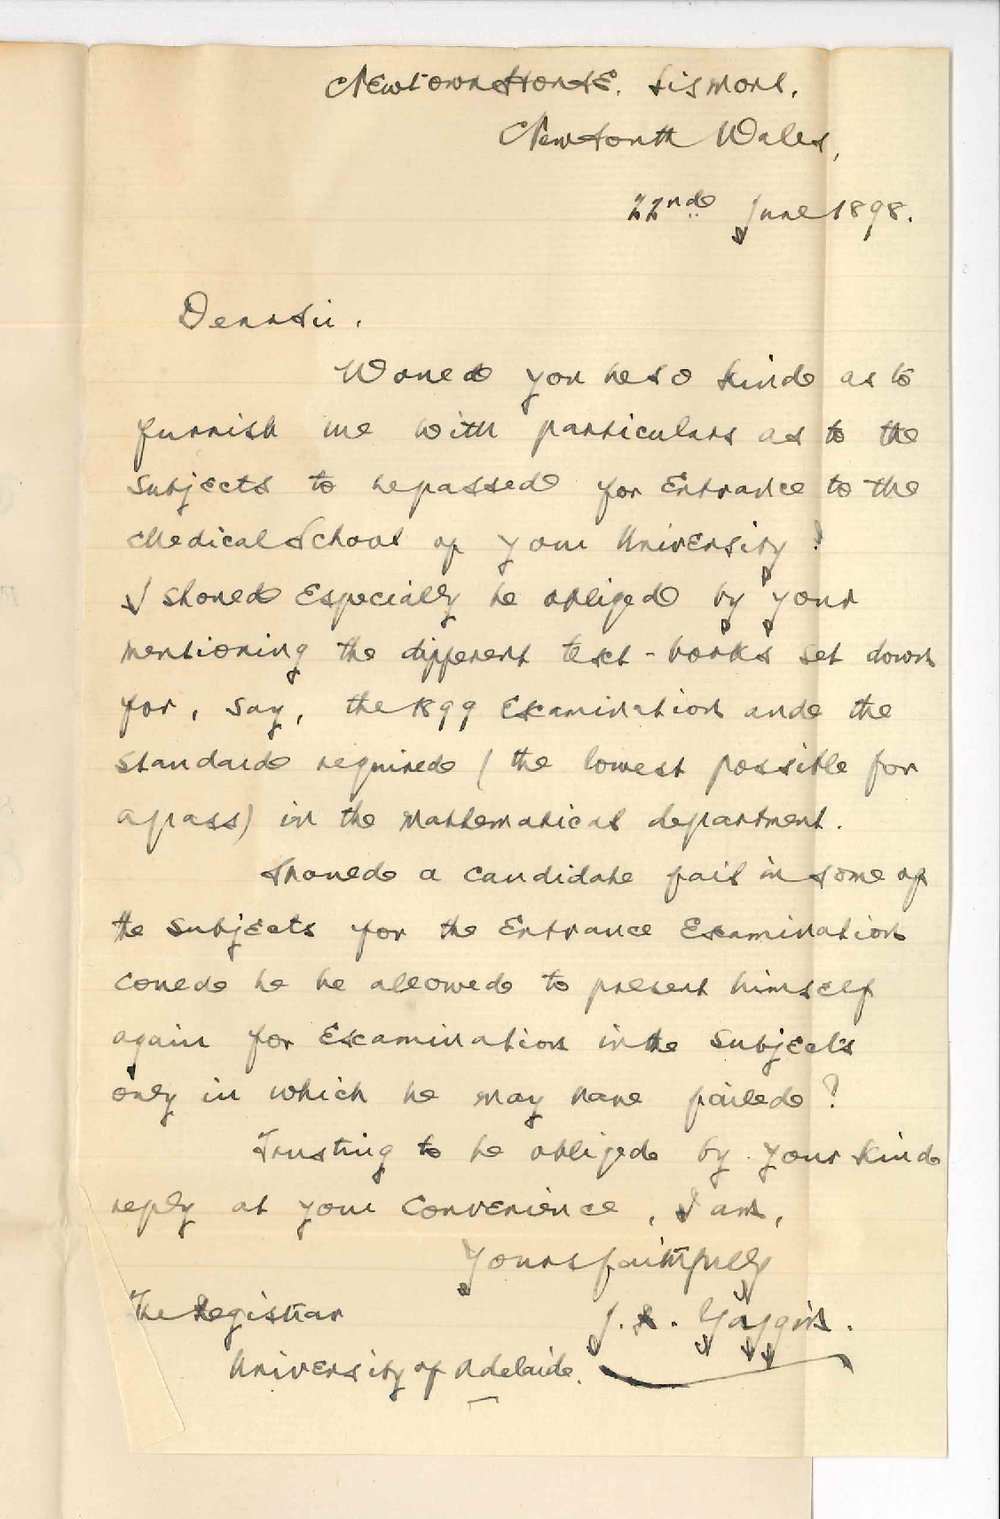 Newtown House. Lismore.
New South Wales,
22nd June 1898.
Dear Sir.
Would you be so kind as to
furnish me with particulars as to the
subjects to be passed for Entrance to the
Medical School of your University?
I should Especially be obliged by your
mentioning the different text-books set down
for, say, the 1899 Examination and the
standard required (the lowest possible for
a pass) in the Mathematical department.
Should a candidate fail in some of
the subjects for the Entrance Examination
could he be allowed to present himself
again for Examination in the subjects
only in which he may have failed?
Trusting to be obliged by your kind
reply at your convenience, I am,
Yours faithfully
The Registrar
J.
University of Adelaide.